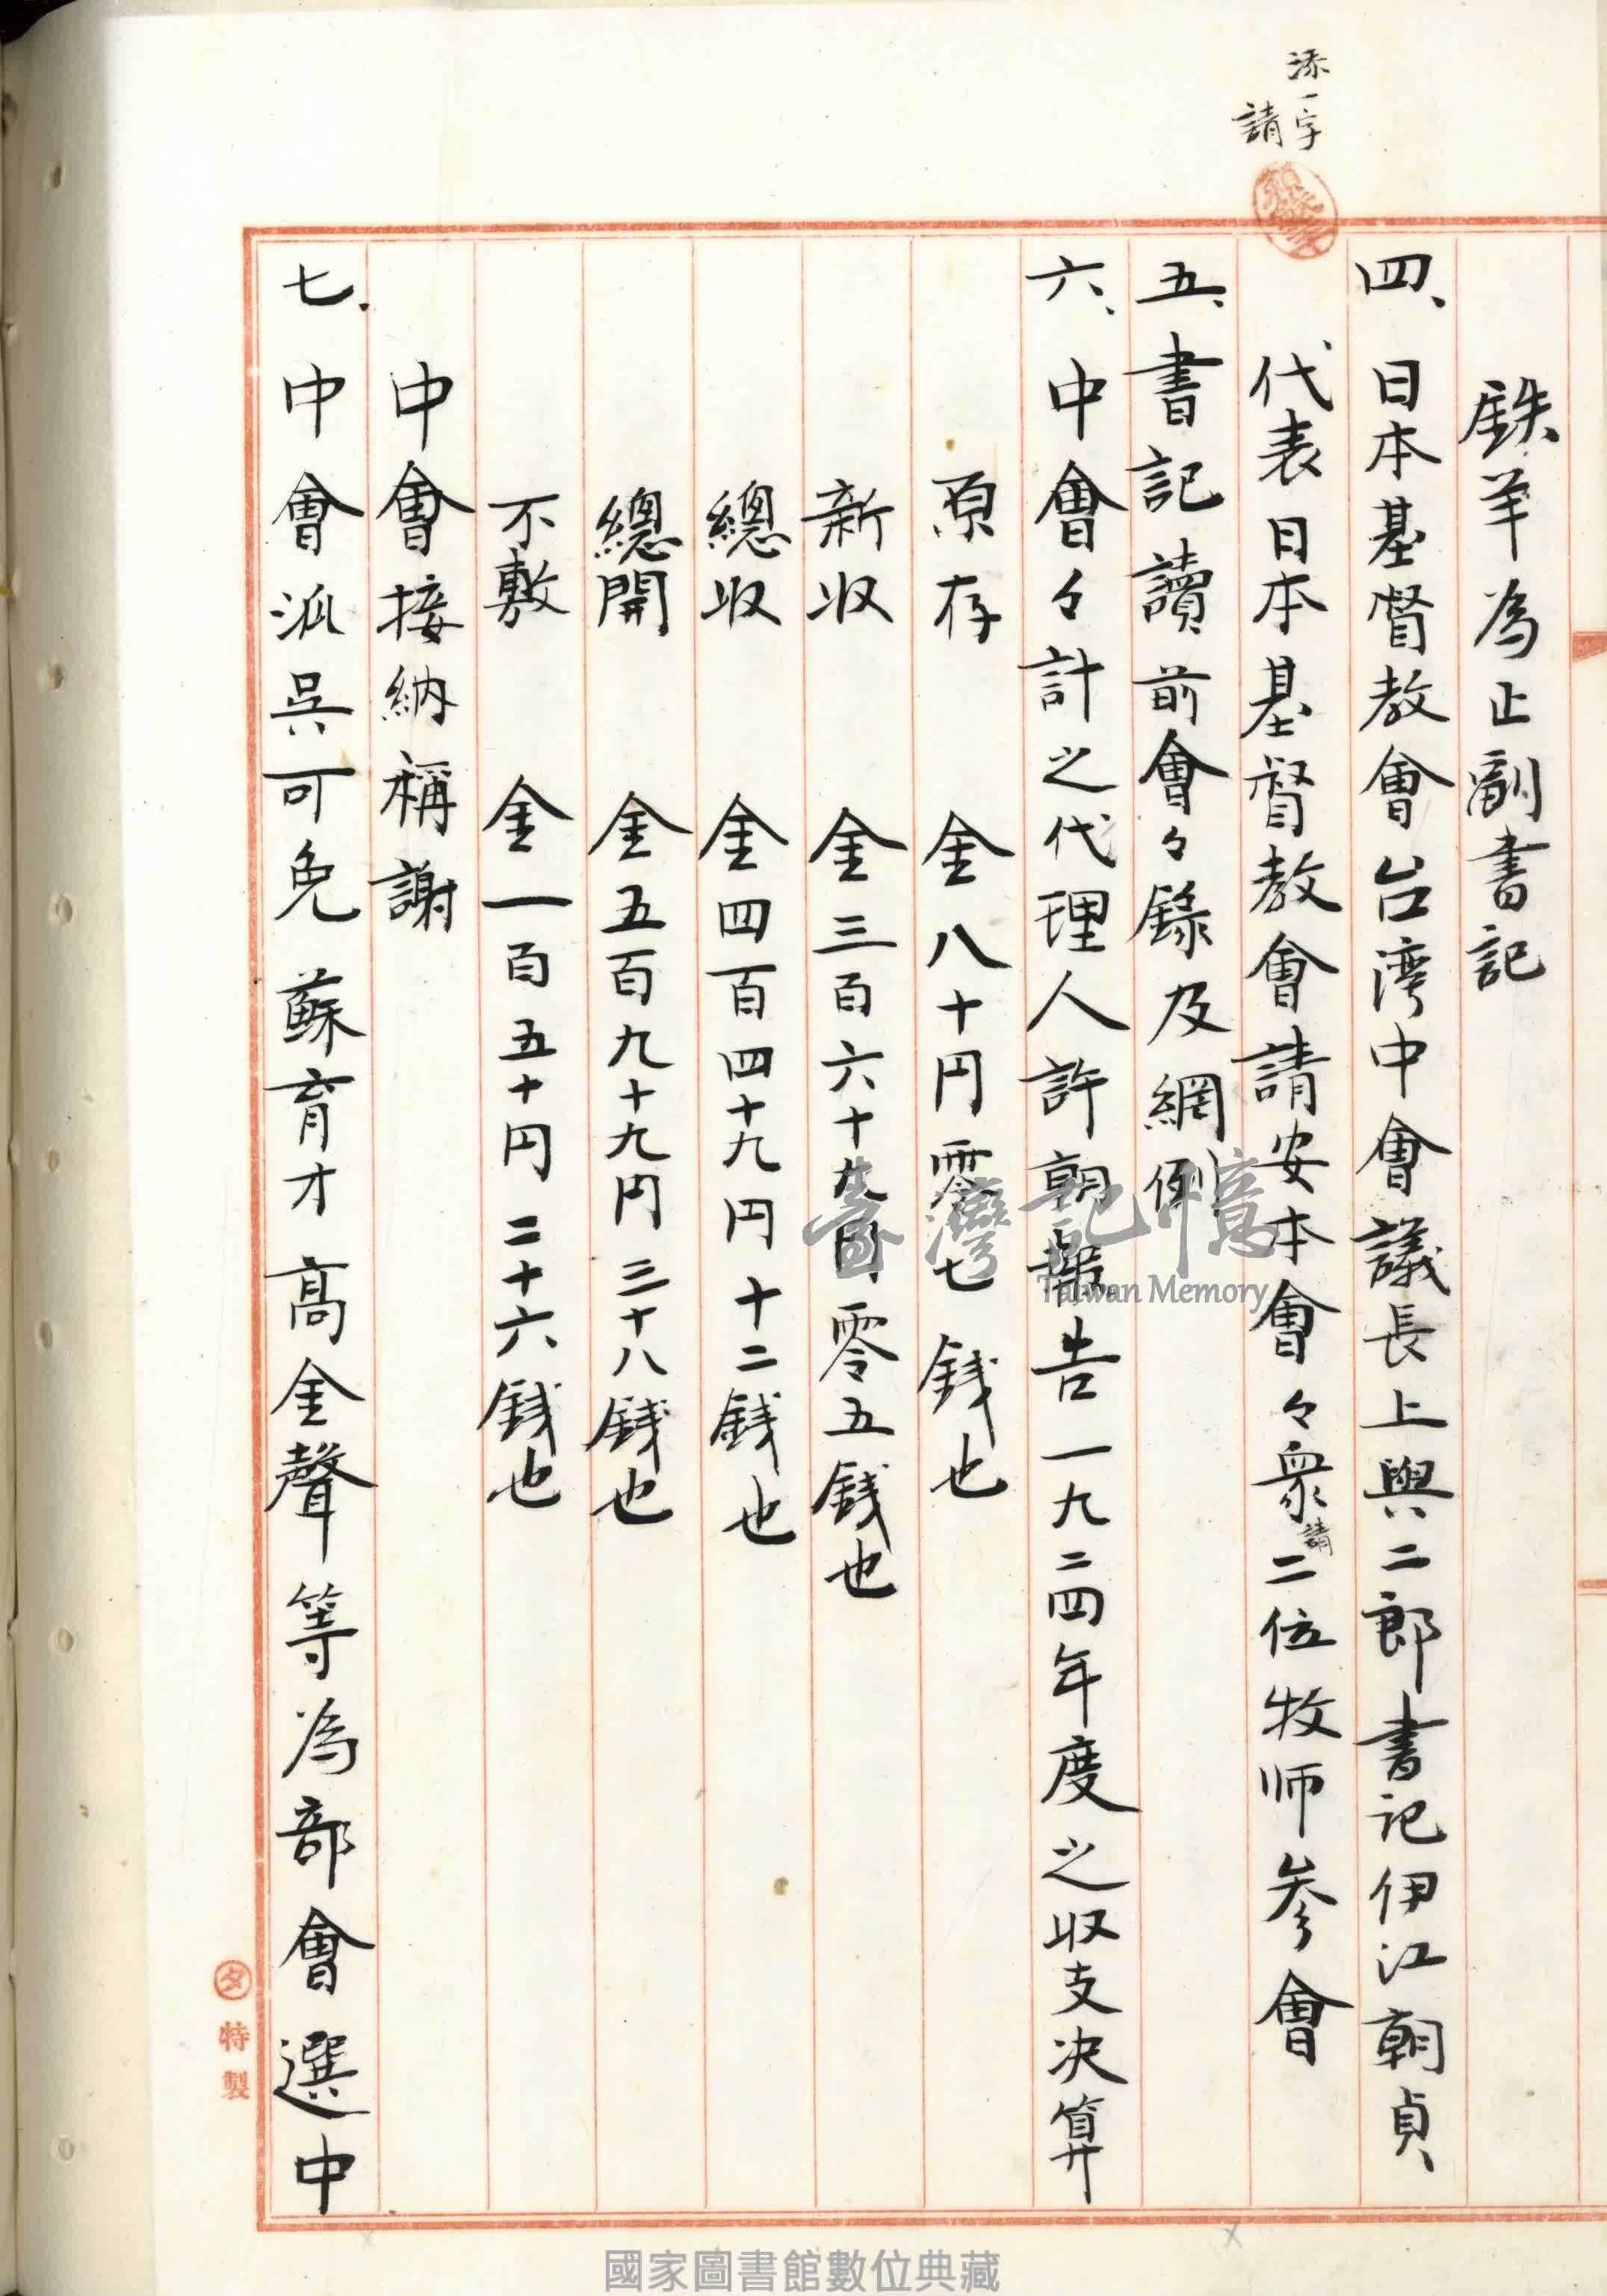 添一字
請
鉄羊為正副書記
四、日本基督教會台湾中會議長上與二郎書記伊江朝貞、
代表日本基督教會請安本會々衆請二位牧师参會
五、書記讀前會々錄及網例
六、中會々計之代理人許朝報告一九二四年度之収支决算
原存 金八十円零七銭也
新収 金三百六十九円零五銭也
總収 金四百四十九円十二銭也
總開 金五百九十九円三十八銭也
不敷 金一百五十円二十六銭也
中會接納稱謝
七、中會派吳可免蘇育才高金聲等為部會選中
タ特製
臺灣記憶
Taiwan Memory
國家圖書館數位典藏